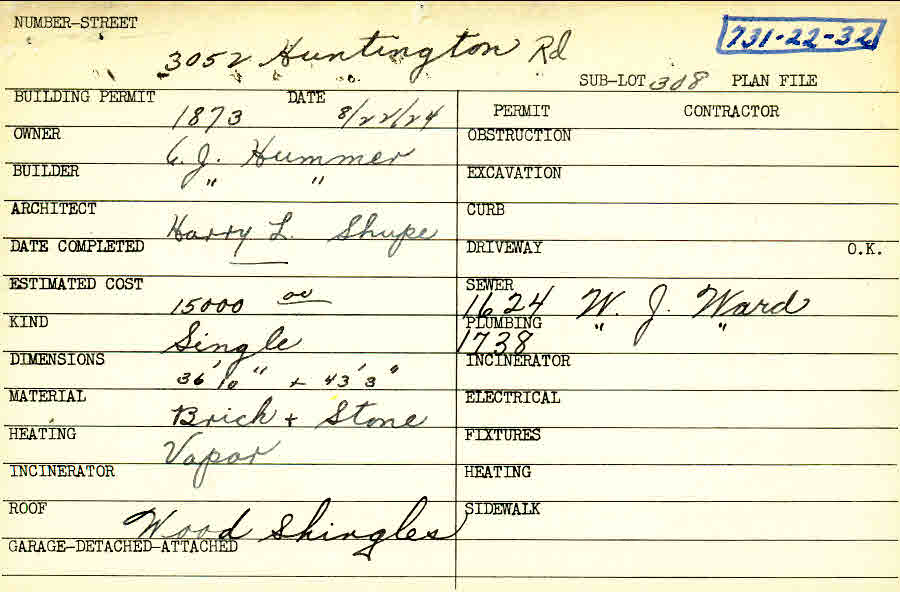 NUMBER-STREET
731-22-32
3052 Huntington Rd
SUB-LOT 308 PLAN FILE
BUILDING PERMIT DATE
1873 8/22/24
PERMIT CONTRACTOR
OWNER
C. J. Hummer
OBSTRUCTION
BUILDER
" "
EXCAVATION
ARCHITECT
Harry L. Shupe
CURB
DATE COMPLETED
DRIVEWAY O.K.
ESTIMATED COST
15000 00
SEWER
1624 W. J. Ward
KIND
Single
PLUMBING
1738 " "
DIMENSIONS
36' 10" + 43' 3"
INCINERATOR
MATERIAL
Brick + Stone
ELECTRICAL
HEATING
Vapor
FIXTURES
INCINERATOR
HEATING
ROOF
Wood Shingles
SIDEWALK
GARAGE-DETACHED-ATTACHED